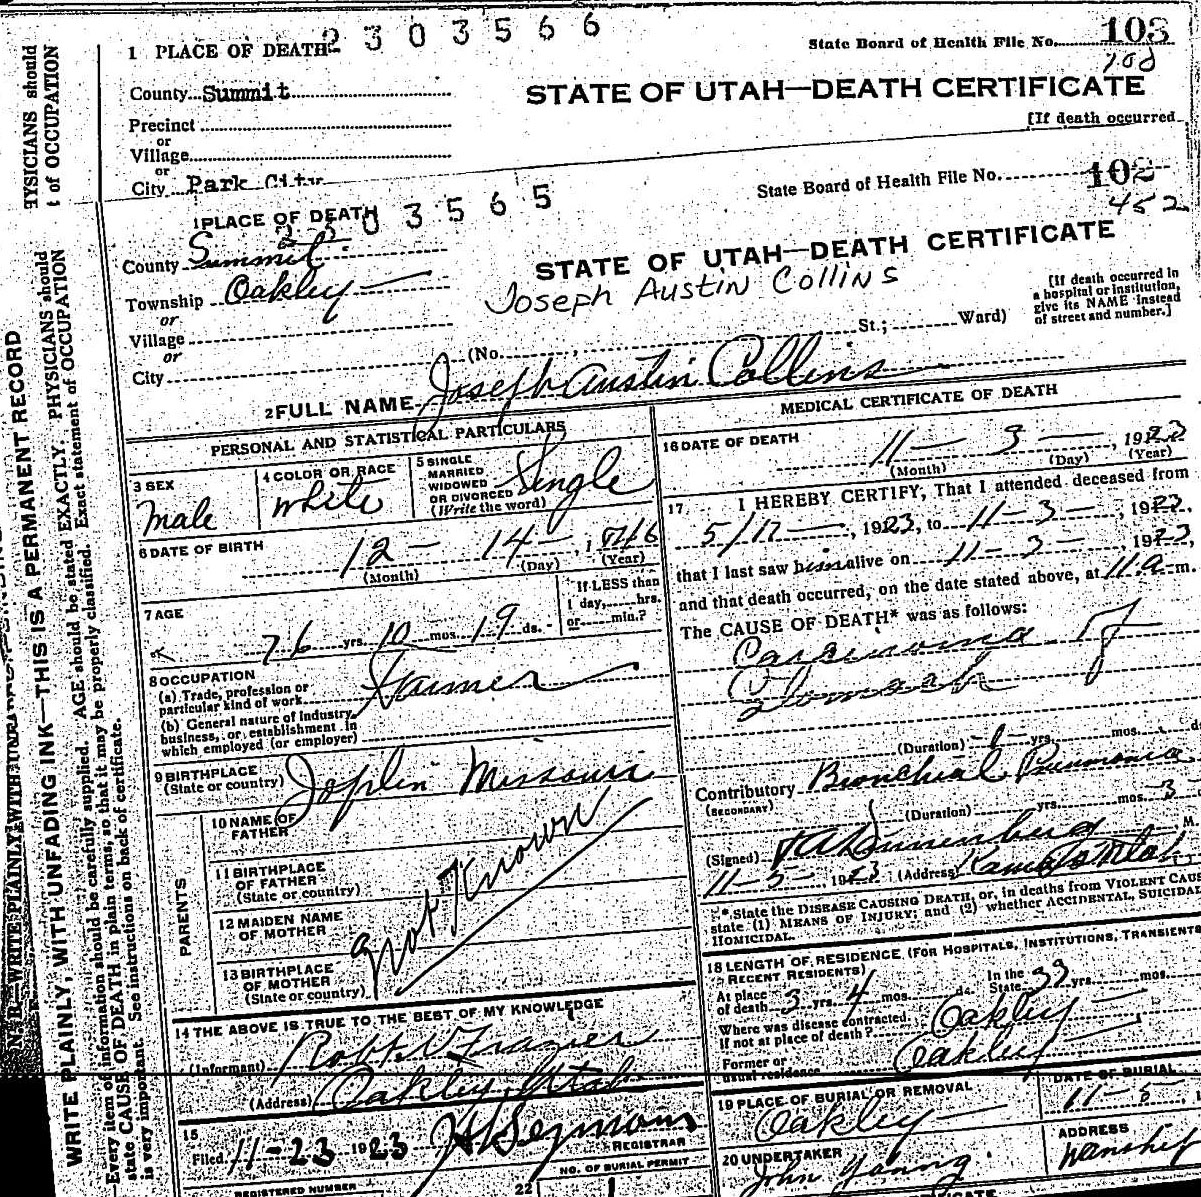 TYSICIANS should
t of OCCUPATION
1 PLACE OF DEATH
2303566
State Board of Health File No. 103
108
County Summit
STATE OF UTAH—DEATH CERTIFICATE
Precinct
or
[If death occurred
Village
or
City Park City
State Board of Health File No. 102
452
1 PLACE OF DEATH
2303565
County Summit
STATE OF UTAH—DEATH CERTIFICATE
Joseph Austin Collins
Township Oakley
or
[If death occurred in
a hospital or institution,
give its NAME instead
of street and number.]
Village
or
St.; Ward)
City
(No.
2 FULL NAME Joseph Austin Collins
PERSONAL AND STATISTICAL PARTICULARS
3 SEX
Male
4 COLOR OR RACE
White
5 SINGLE
MARRIED
WIDOWED
OR DIVORCED
(Write the word)
Single
6 DATE OF BIRTH
12 — 14 —, 1846
(Month) (Day) (Year)
7 AGE
76 yrs. 10 mos. 19 ds.
If LESS than
1 day, hrs.
or min.?
8 OCCUPATION
(a) Trade, profession or
particular kind of work
Farmer
(b) General nature of industry,
business, or establishment in
which employed (or employer)
9 BIRTHPLACE
(State or country)
Joplin Missouri
PARENTS
10 NAME OF
FATHER
11 BIRTHPLACE
OF FATHER
(State or country)
12 MAIDEN NAME
OF MOTHER
13 BIRTHPLACE
OF MOTHER
(State or country)
Not Known
14 THE ABOVE IS TRUE TO THE BEST OF MY KNOWLEDGE
(Informant) Robt. W Frazier
(Address) Oakley, Utah
15
Filed 11-23 1923
REGISTRAR
REGISTERED NUMBER
22
NO. OF BURIAL PERMIT
1
MEDICAL CERTIFICATE OF DEATH
16 DATE OF DEATH
11 — 3 —, 1923
(Month) (Day) (Year)
17 I HEREBY CERTIFY, That I attended deceased from
5/17 —, 1923, to 11 - 3 —, 1923,
that I last saw him alive on 11 - 3 —, 1923,
and that death occurred, on the date stated above, at 11 a m.
The CAUSE OF DEATH* was as follows:
Carcinoma of
Stomach
(Duration) 1 yrs. mos. d
Contributory Bronchial Pneumonia
(SECONDARY)
(Duration) yrs. mos. 3
(Signed) M.
11-5-, 1923 (Address) Kamas Utah
*State the DISEASE CAUSING DEATH, or, in deaths from VIOLENT CAUS
state (1) MEANS OF INJURY; and (2) whether ACCIDENTAL, SUICIDAL
HOMICIDAL.
18 LENGTH OF RESIDENCE (FOR HOSPITALS, INSTITUTIONS, TRANSIENTS
RECENT RESIDENTS)
At place
of death 3 yrs. 4 mos. ds.
In the
State 33 yrs. mos.
Where was disease contracted,
if not at place of death? Oakley
Former or
usual residence Oakley
19 PLACE OF BURIAL OR REMOVAL
Oakley
DATE OF BURIAL
11-5
20 UNDERTAKER
John Young
ADDRESS
Wanship
WRITE PLAINLY, WITH UNFADING INK—THIS IS A PERMANENT RECORD
Every item of information should be carefully supplied. AGE should be stated EXACTLY. PHYSICIANS should
state CAUSE OF DEATH in plain terms, so that it may be properly classified. Exact statement of OCCUPATION
is very important. See instructions on back of certificate.